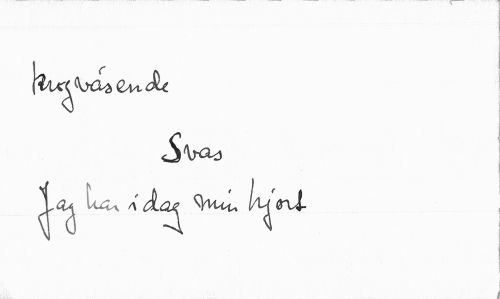 krogväsende
Svas
Jag har idag min hjort